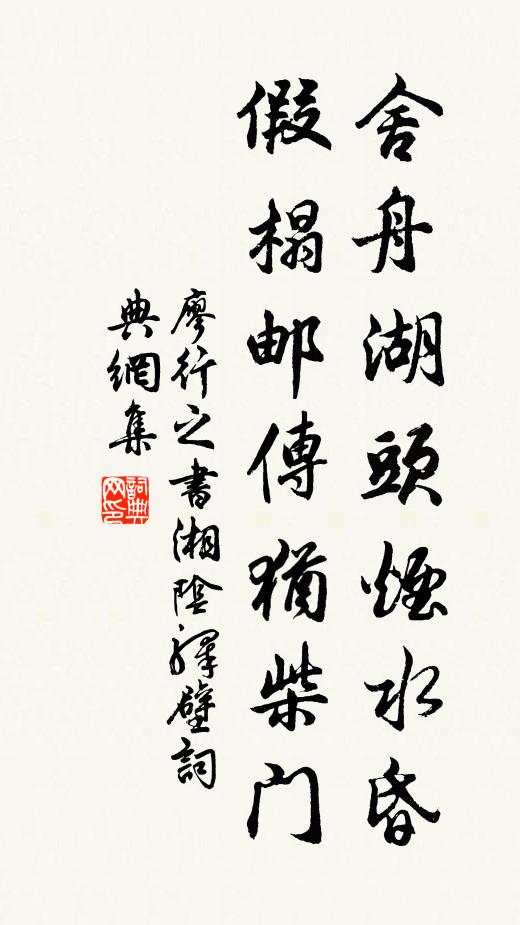 舍舟湖頭煙水昏
假榻邮傳猶柴门
廖行之書湘陰驛壁詞
典網集
詞典網印